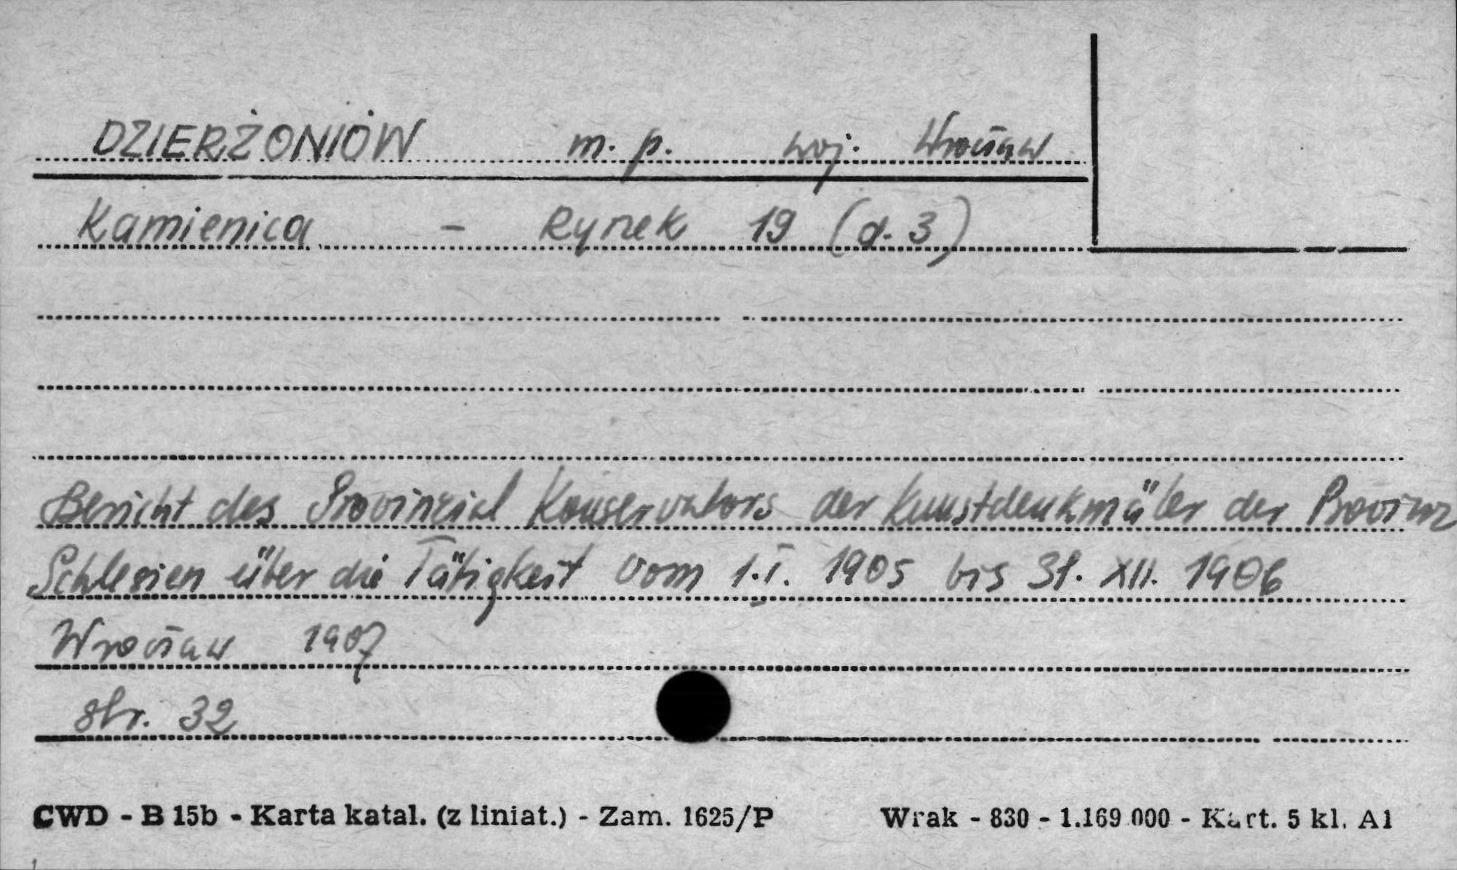 DZIERŻONIÓW m. p. woj. Wrocław
Kamienica - Rynek 19 (d. 3)
Bericht des Provinzial Konservators der Kunstdenkmäler der Provinz
Schlesien über die Tätigkeit vom 1.I. 1905 bis 31. XII. 1906
Wrocław 1907
str. 32
CWD - B 15b - Karta katal. (z liniat.) - Zam. 1625/P Wrak - 830 - 1.169 000 - Kart. 5 kl. A1